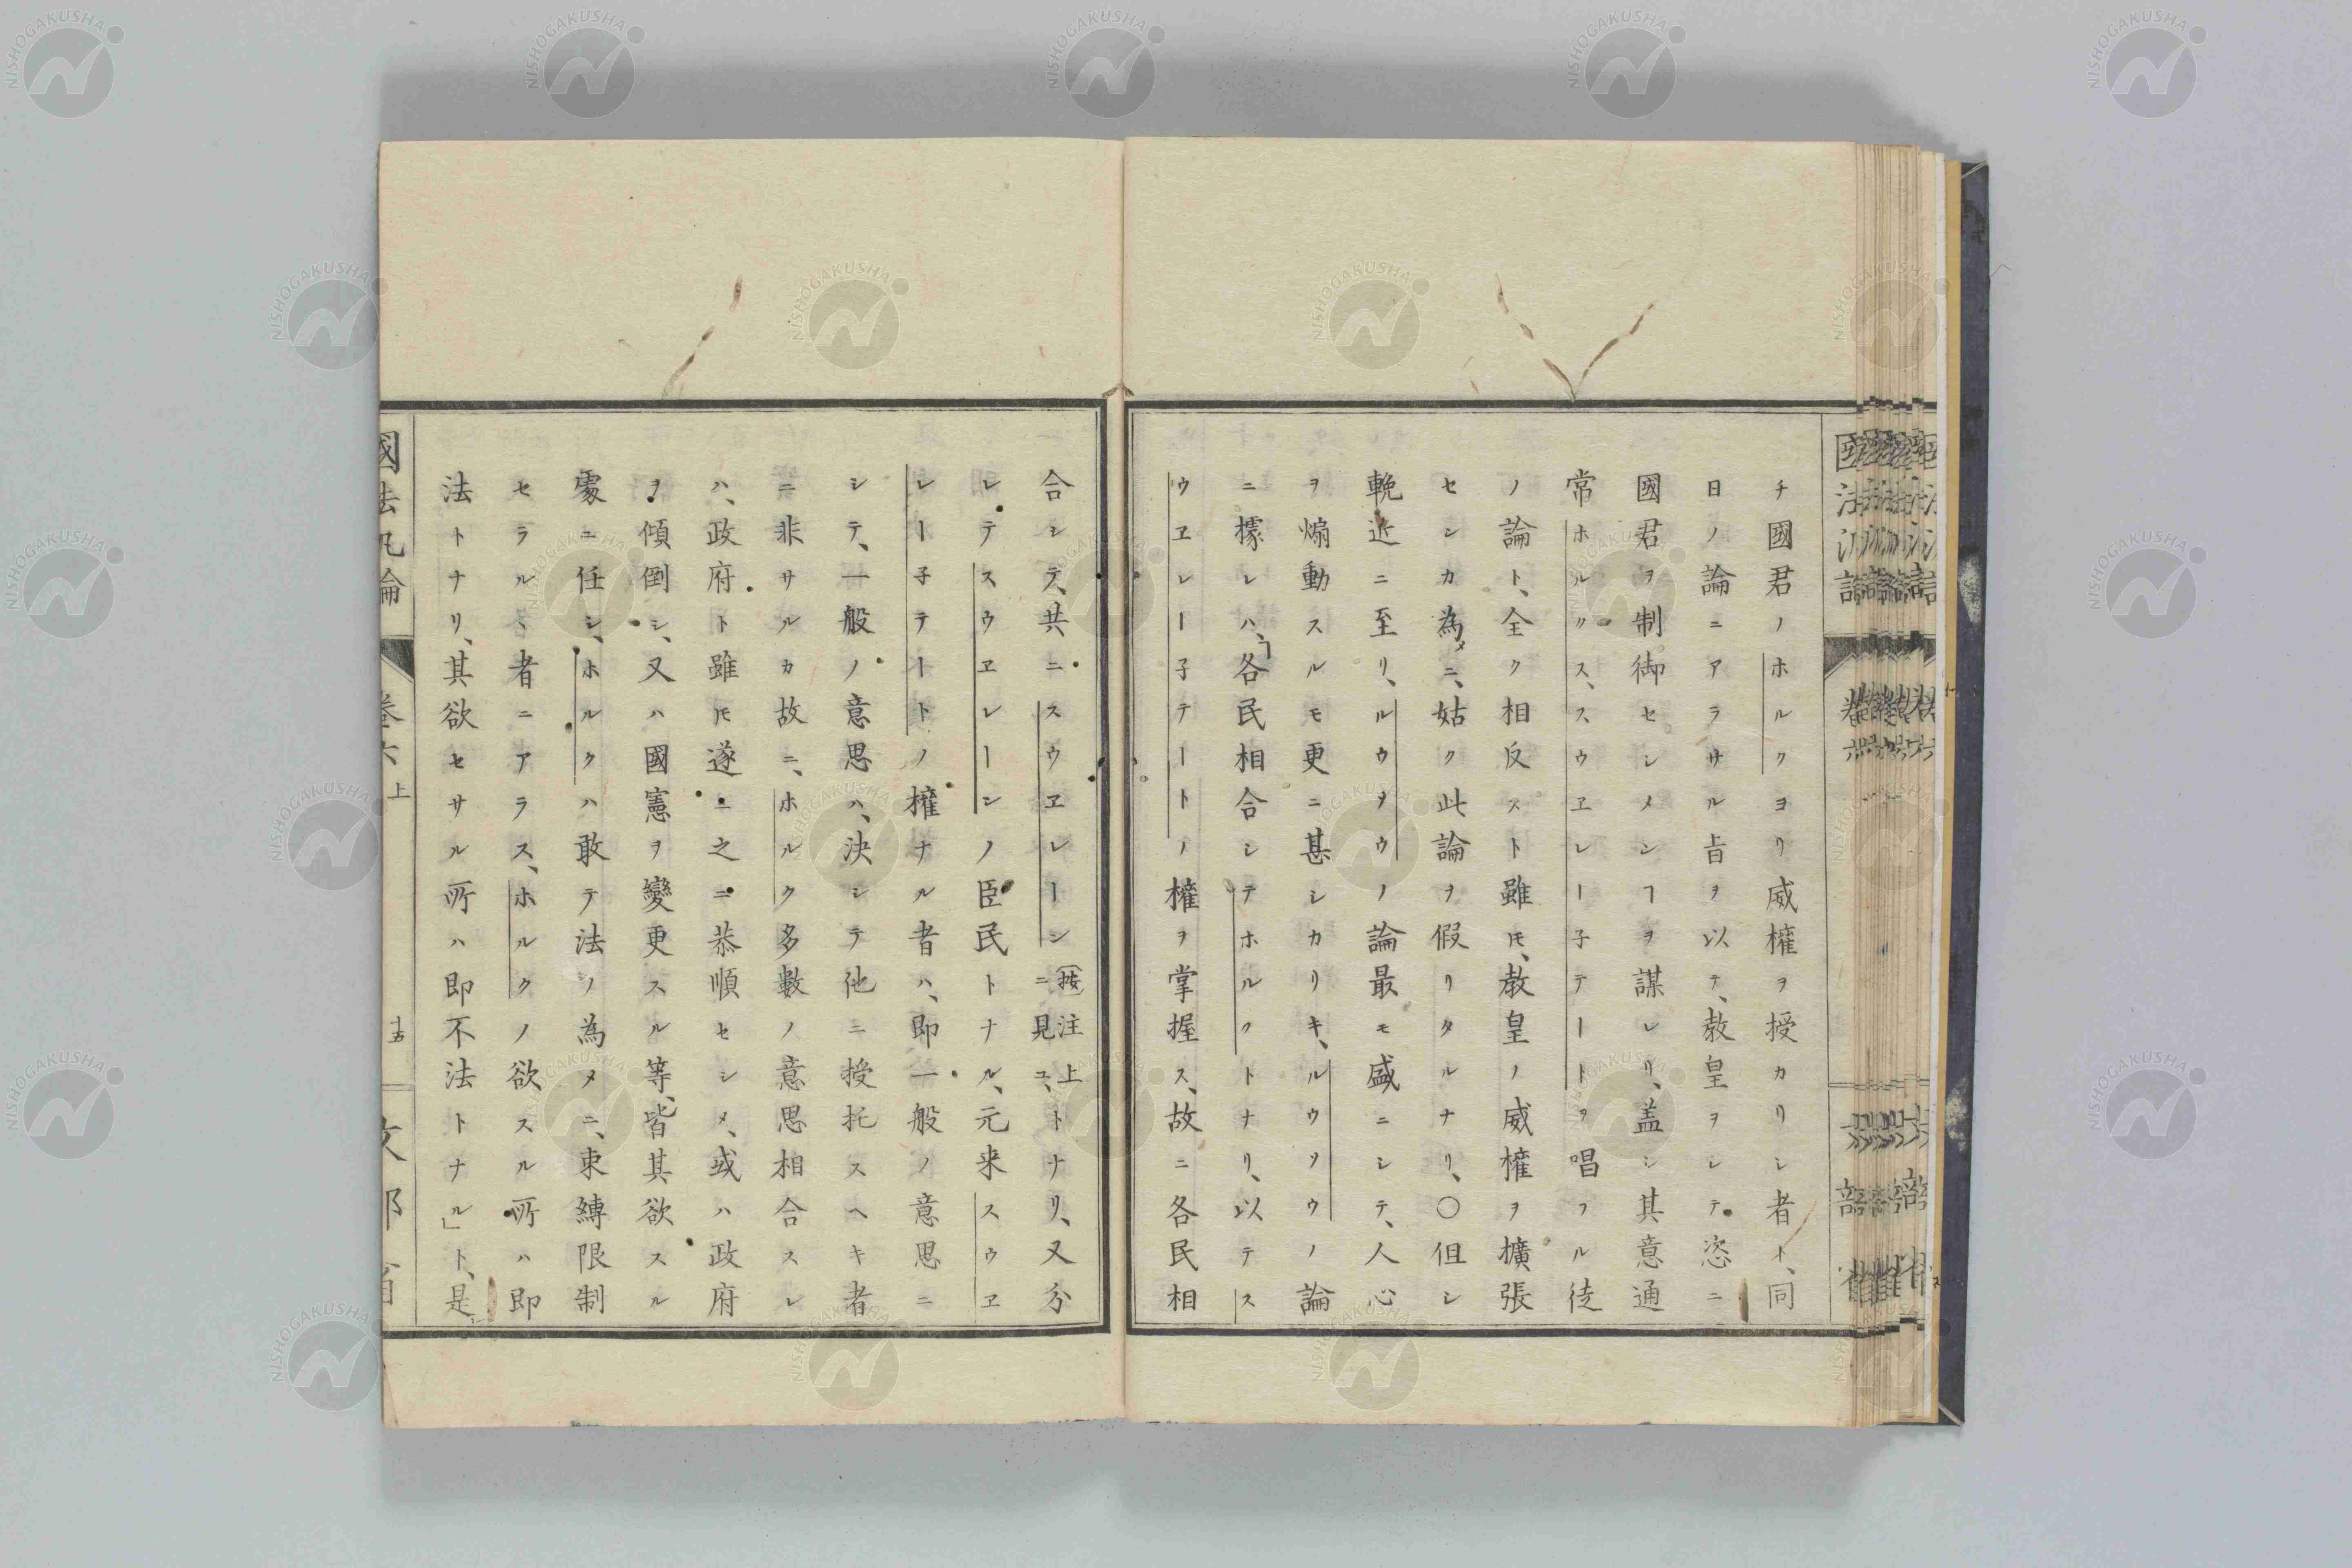 チ國君ノホルクヨリ威權ヲ授カリシ者ト、同
日ノ論ニアラサル㫖ヲ以テ、敎皇ヲシテ恣ニ
國君ヲ制御セシメンヿヲ謀レリ、盖シ其意通
常ホルクス、スウヱレー子テートヲ唱フル徒
ノ論ト、全ク相反スト雖𪜈、敎皇ノ威權ヲ擴張
センカ為メニ、姑ク此論ヲ假リタルナリ、〇但シ
輓近ニ至リ、ルウヲウノ論最モ盛ニシテ、人心
ヲ煽動スルモ更ニ甚シカリキ、ルウヲウノ論
ニ據レハ、「各民相合シテホルクトナリ、以テス
ウヱレー子テートノ權ヲ掌握ス、故ニ各民相
合シテ、共ニスウヱレーン(按注上ニ見ユ、トナリ、又分
レテスウヱレーンノ臣民トナル、元来スウヱ
レー子テートノ權ナル者ハ、即一般ノ意思ニ
シテ、一般ノ意思ハ、決シテ他ニ授托スヘキ者
ニ非サルカ故ニ、ホルク多數ノ意思相合スレ
ハ、政府ト雖𪜈遂ニ之ニ恭順セシメ、或ハ政府
ヲ傾倒シ、又ハ國憲ヲ變更スル等、皆其欲スル
處ニ任シ、ホルクハ敢テ法ノ為メニ、束縛限制
セラルヽ者ニアラス、ホルクノ欲スル所ハ即
法トナリ、其欲セサル所ハ即不法トナル」ト、是
國法汎論
卷六上
十五
文部省